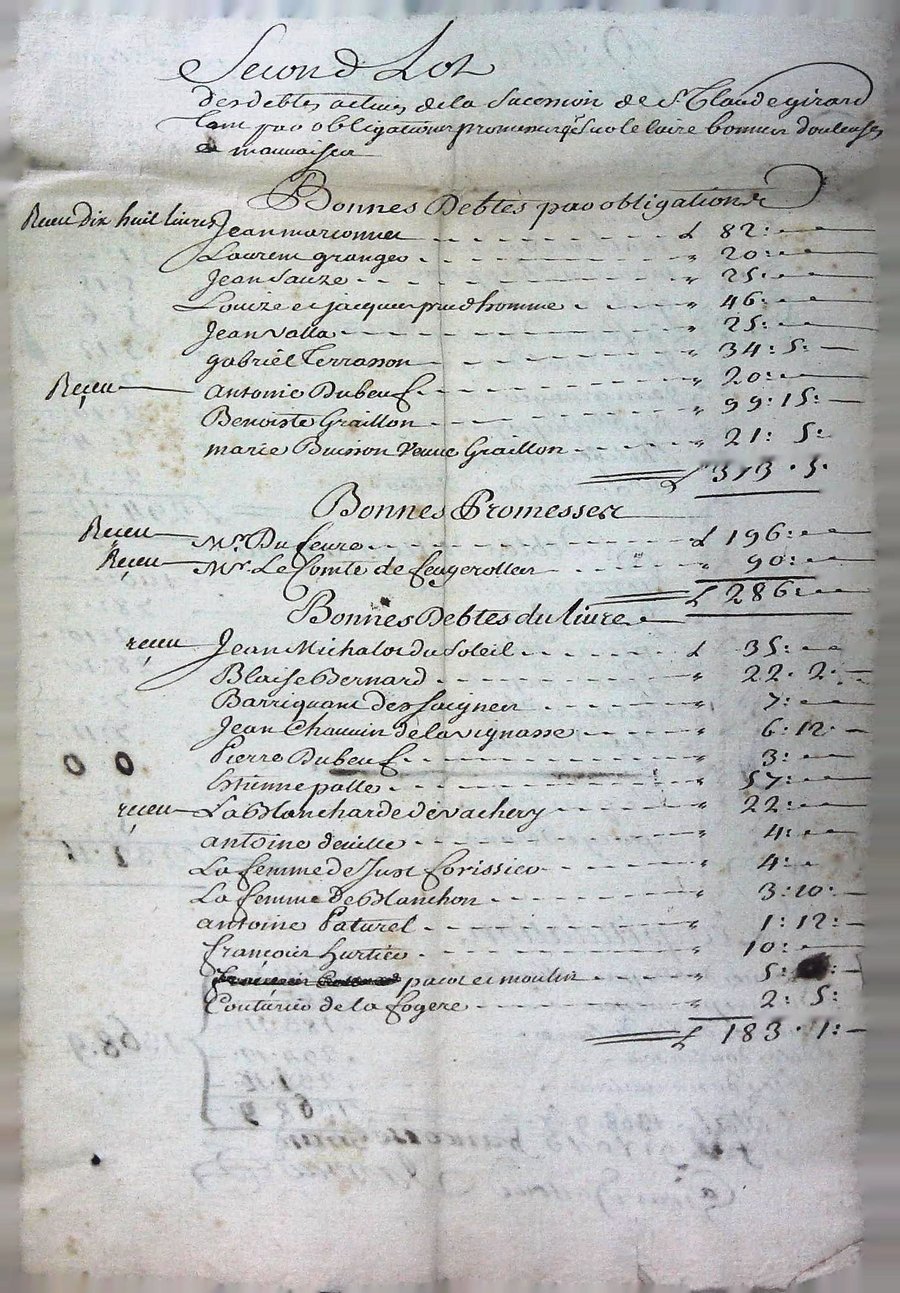 Second Lot
des debtes actives de la Succession de Sr. Claude girard
tant par obligations promesses que sur le livre bonnes douteuses
et mauvaises
Bonnes Debtes par obligations
Receu dix huit livres Jean marconnet £ 82:
Laurent granger " 20:
Jean Sauze " 25:
Louize et jacques prud homme " 46:
Jean Valla " 25:
gabriel Terrasson " 34: 5:
Receu antoine Dubeuf " 20:
Benoiste Graillon " 99: 15:
marie Buisson veuve Graillon " 21: 5:
£ 373. 5.
Bonnes Promesses
Receu Mr. Du feure £ 196:
Receu Mr. Le Comte de feugerolles " 90:
£ 286:
Bonnes Debtes du livre
receu Jean Michalot du Soleil £ 35:
Blaise Bernard " 22. 2.
Barriquant des Saignes " 7:
Jean Chauvin de la vignasse " 6: 12.
0 0 Pierre Dubeuf " 3:
Etienne palle " 57:
receu La Blancharde de vachery " 22:
antoine deville " 4:
La femme de Just forissier " 4:
La femme De Blanchon " 3: 10:
antoine Paturel " 1: 12:
françois hurtier " 10:
pacot et moulin " 5:
Couturier de la fogere " 2: 5:
£ 183. 1: